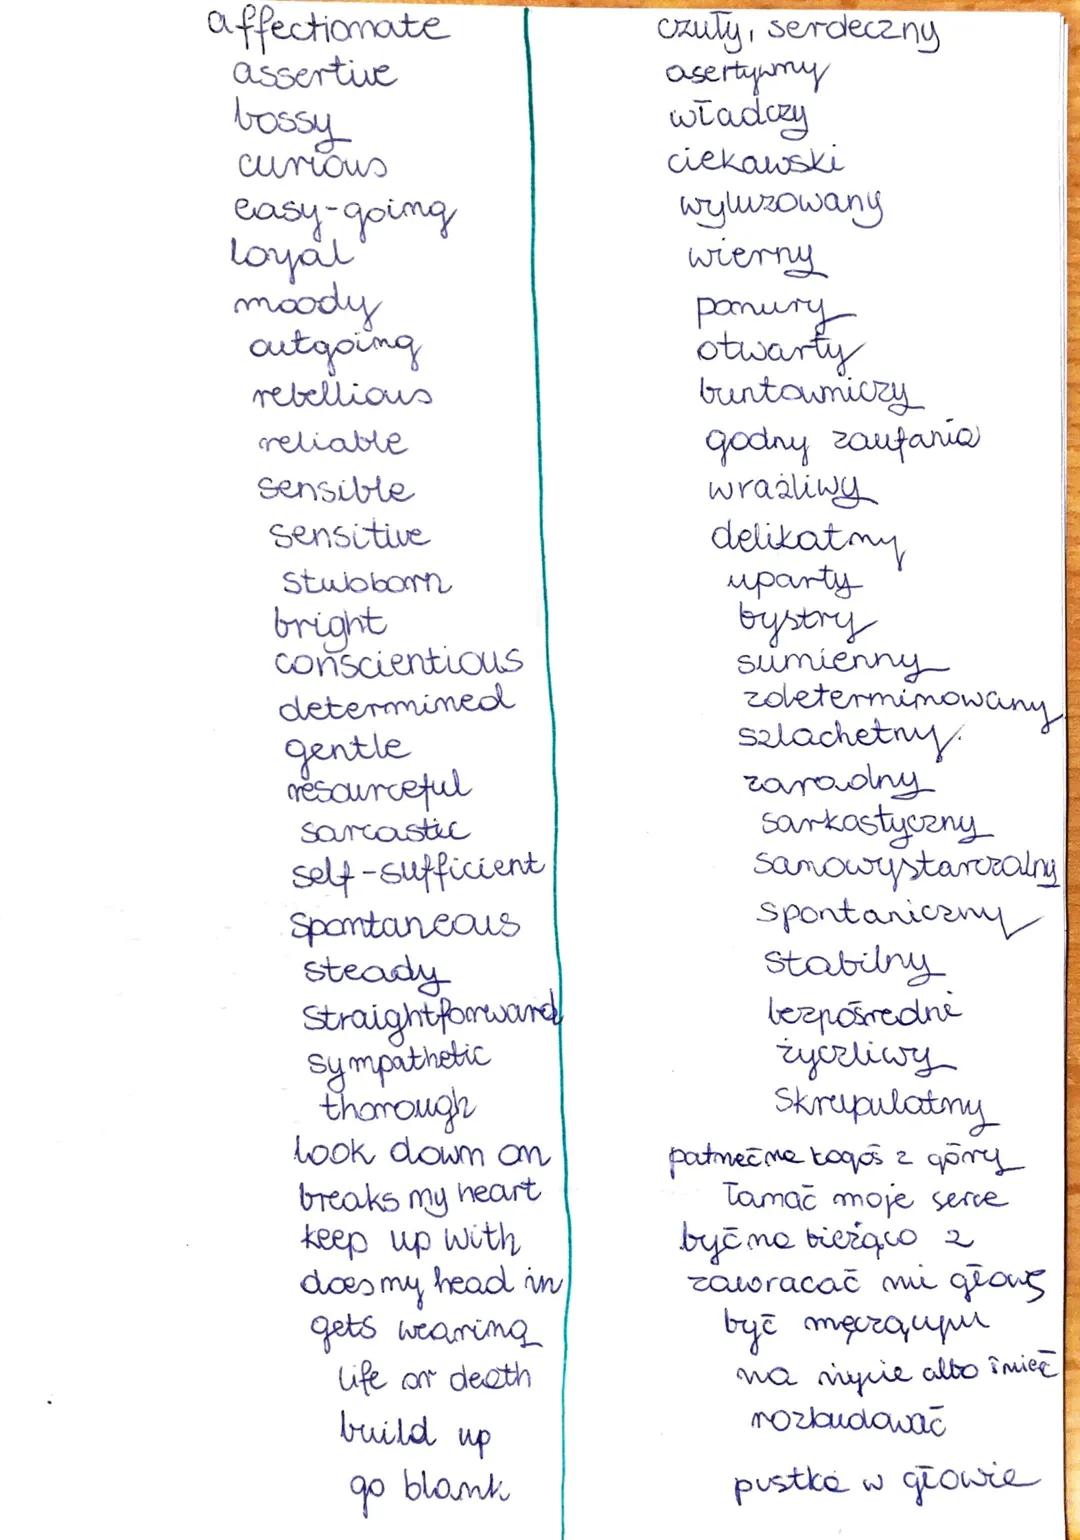 affectionate czuły, serdeczny
assertive asertywny
bossy władczy
curious ciekawski
easy-going wyluzowany
loyal wierny
moody ponury
outgoing otwarty
rebellious buntowniczy
reliable godny zaufania
sensible wrażliwy
sensitive delikatny
stubborn uparty
bright bystry
conscientious sumienny
determined zdeterminowany
gentle szlachetny.
resourceful zaradny
sarcastic sarkastyczny
self-sufficient samowystarczalny
spontaneous spontaniczny
steady stabilny
straightforward bezpośredni
sympathetic życzliwy
thorough skrupulatny
look down on patrzeć na kogoś z góry
breaks my heart łamać moje serce
keep up with być na bieżąco z
does my head in zawracać mi głowę
gets wearing być męczącym
life or death na życie albo śmierć
build up rozbudować
go blank pustka w głowie